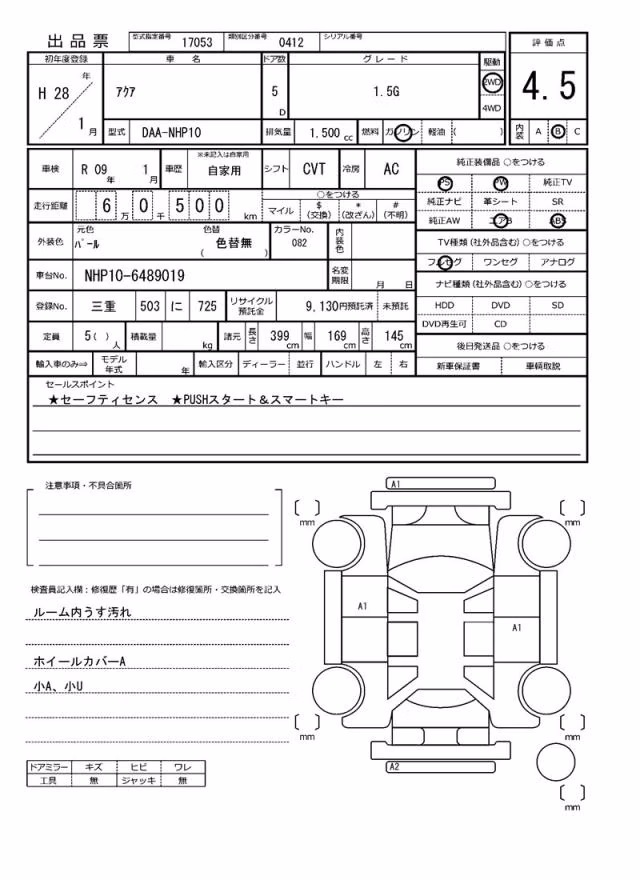 出品票 型式指定番号 17053 類別区分番号 0412 シリアル番号
評価点
4.5
内装 A B C
初年度登録 車名 ドア数 グレード 駆動
H 28 年 1 月 アクア 5 D 1.5G 2WD 4WD
型式 DAA-NHP10 排気量 1.500 cc 燃料 ガソリン 軽油 ( )
車検 R 09 年 1 月 車歴 ※未記入は自家用 自家用 シフト CVT 冷房 AC
走行距離 6 万 0 千 5 0 0 km ○をつける
マイル $(交換) *(改ざん) #(不明)
外装色 元色 パール 色替 ( 色替無 ) カラーNo. 082 内装色
車台No. NHP10-6489019 名変期限 月 日
登録No. 三重 503 に 725 リサイクル預託金 9,130円預託済 未預託
定員 5( ) 人 積載量 kg 諸元 長さ 399 cm 幅 169 cm 高さ 145 cm
輸入車のみ⇒ モデル年式 年 輸入区分 ディーラー 並行 ハンドル 左 右
純正装備品 ○をつける
PS PW 純正TV
純正ナビ 革シート SR
純正AW エアB ABS
TV種類 (社外品含む) ○をつける
フルセグ ワンセグ アナログ
ナビ種類 (社外品含む) ○をつける
HDD DVD SD
DVD再生可 CD
後日発送品 ○をつける
新車保証書 車輌取説
セールスポイント
★セーフティセンス ★PUSHスタート＆スマートキー
注意事項・不具合箇所
検査員記入欄：修復歴「有」の場合は修復箇所・交換箇所を記入
ルーム内うす汚れ
ホイールカバーA
小A、小U
ドアミラー キズ ヒビ ワレ
工具 無 ジャッキ 無
A1
mm
mm
A1
A1
mm
mm
A2
mm